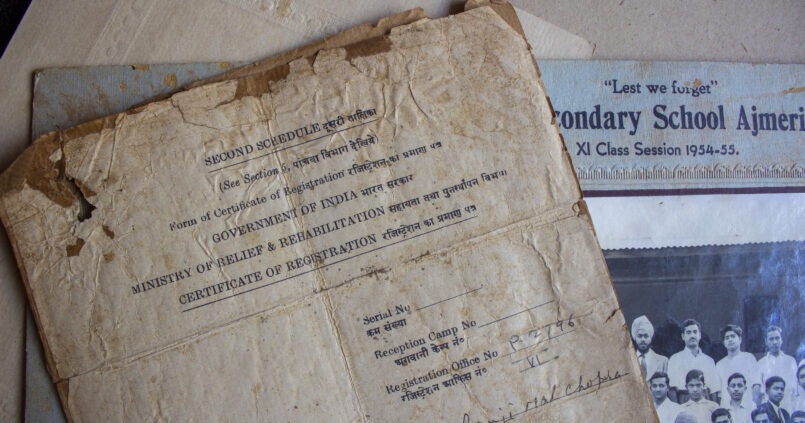 SECOND SCHEDULE दूसरी तालिका
(See Section 5, पांचवा विभाग देखिये)
Form of Certificate of Registration रजिस्ट्रेशन का प्रमाण पत्र
GOVERNMENT OF INDIA भारत सरकार
MINISTRY OF RELIEF & REHABILITATION सहायता तथा पुनर्स्थापन विभाग
CERTIFICATE OF REGISTRATION रजिस्ट्रेशन का प्रमाण पत्र
Serial No
क्रम संख्या
Reception Camp No
अगवानी कैम्प नं०
Registration Office No P. 2796
रजिस्ट्रेशन आफिस नं० VI
Mal Chopra
"Lest we forget"
condary School Ajmer
XI Class Session 1954-55.